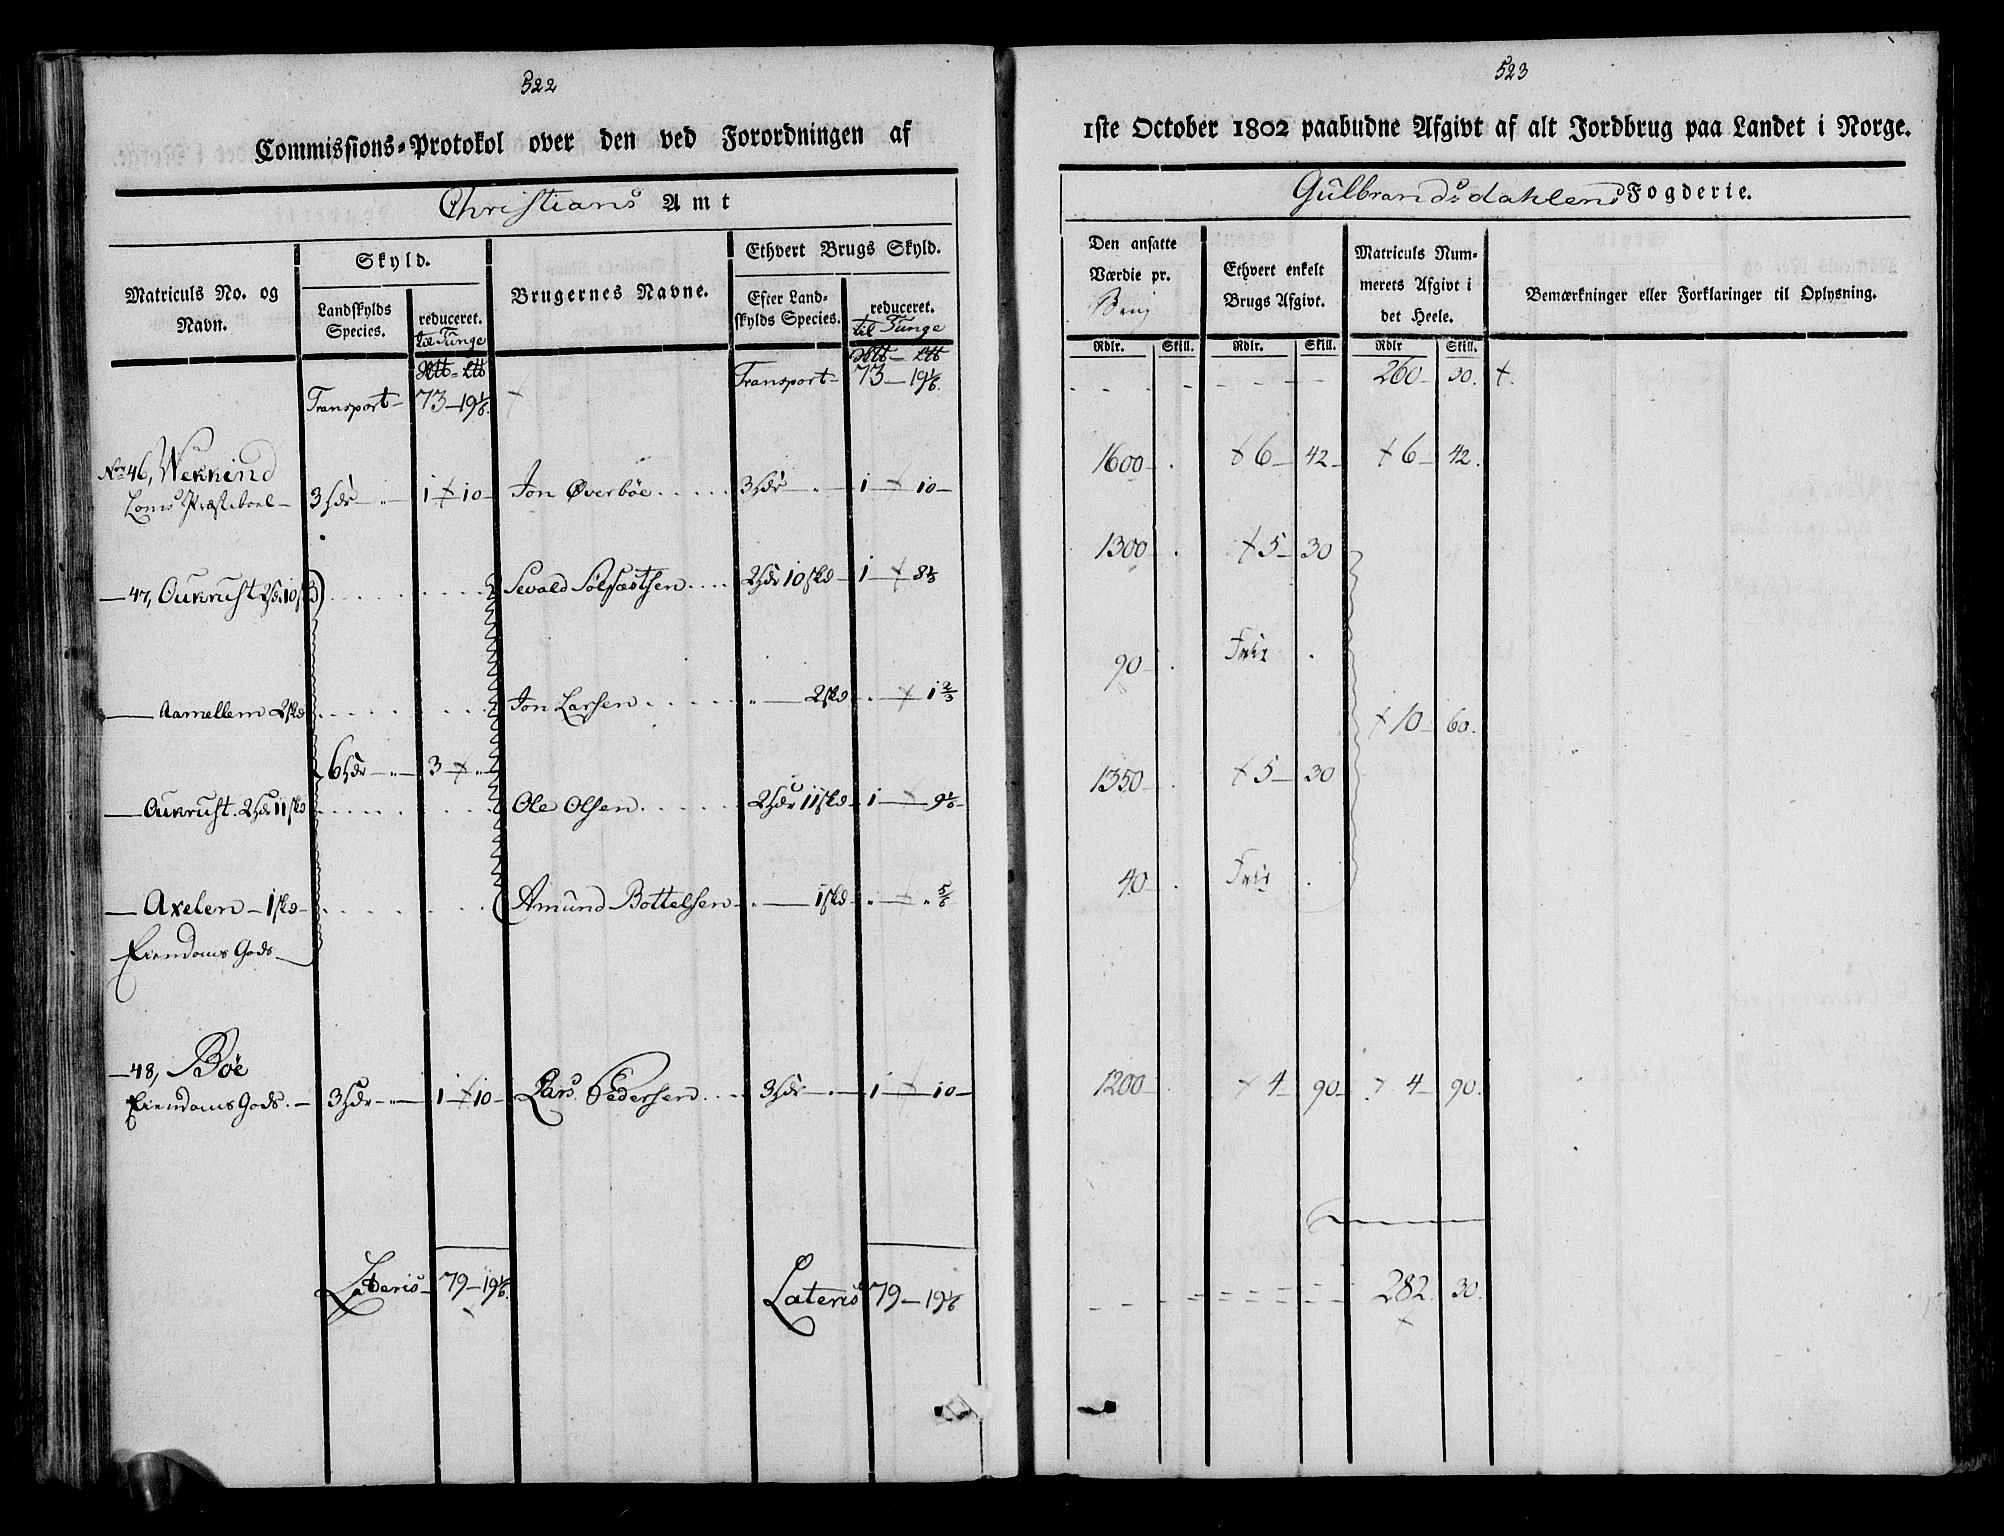 522
Commissions-Protokol over den ved Forordningen af
Christians Amt
Matriculs No. og Navn.
Skyld.
Landskylds Species.
reduceret. til Tunge
Brugernes Navne.
Ethvert Brugs Skyld.
Efter Landskylds Species.
reduceret. til Tunge
Transport 73 — 19 1/6
Transport 73 — 19 1/6
No 46,
Loms Præsteboel 3 Hdr — " 1 — 10 Jon Øverbøe 3 Hdr — " 1 — 10
47, Oukrust 2 Hdr 10 skd Sevald 2 Hdr 10 skd 1 — 8 1/3
Aamellem 2 skd Jon Larsen " 2 skd " 1 2/3
6 Hdr — " 3 — "
Oukrust. 2 Hdr 11 skd Ole Olsen 2 Hdr 11 skd 1 — 9 1/6
Axelen — 1 skd Amund Bottelsen " 1 skd " — " 5/6
Eiendoms Gods
48, Bøe
Eiendoms Gods. 3 Hdr — " 1 — 10 Lars Pedersen 3 Hdr — " 1 — 10
Lateris 79 — 19 1/6 Lateris 79 — 19 1/6
523
1ste October 1802 paabudne Afgivt af alt Jordbrug paa Landet i Norge.
Gulbrandsdahlens Fogderie.
Den ansatte Værdie pr. Brug
Ethvert enkelt Brugs Afgivt.
Matriculs Nummerets Afgivt i det Heele.
Bemærkninger eller Forklaringer til Oplysning.
Rdlr. Skill. Rdlr. Skill. Rdlr Skill.
260 — 30.
1600 — . 6 — 42 — 6 — 42.
1300 — . 5 — 30
90 — . Frie .
10 — 60.
1350 — . 5 — 30
40 — . Frie .
1200 — . 4 — 90 — 4 — 90.
282. 30.